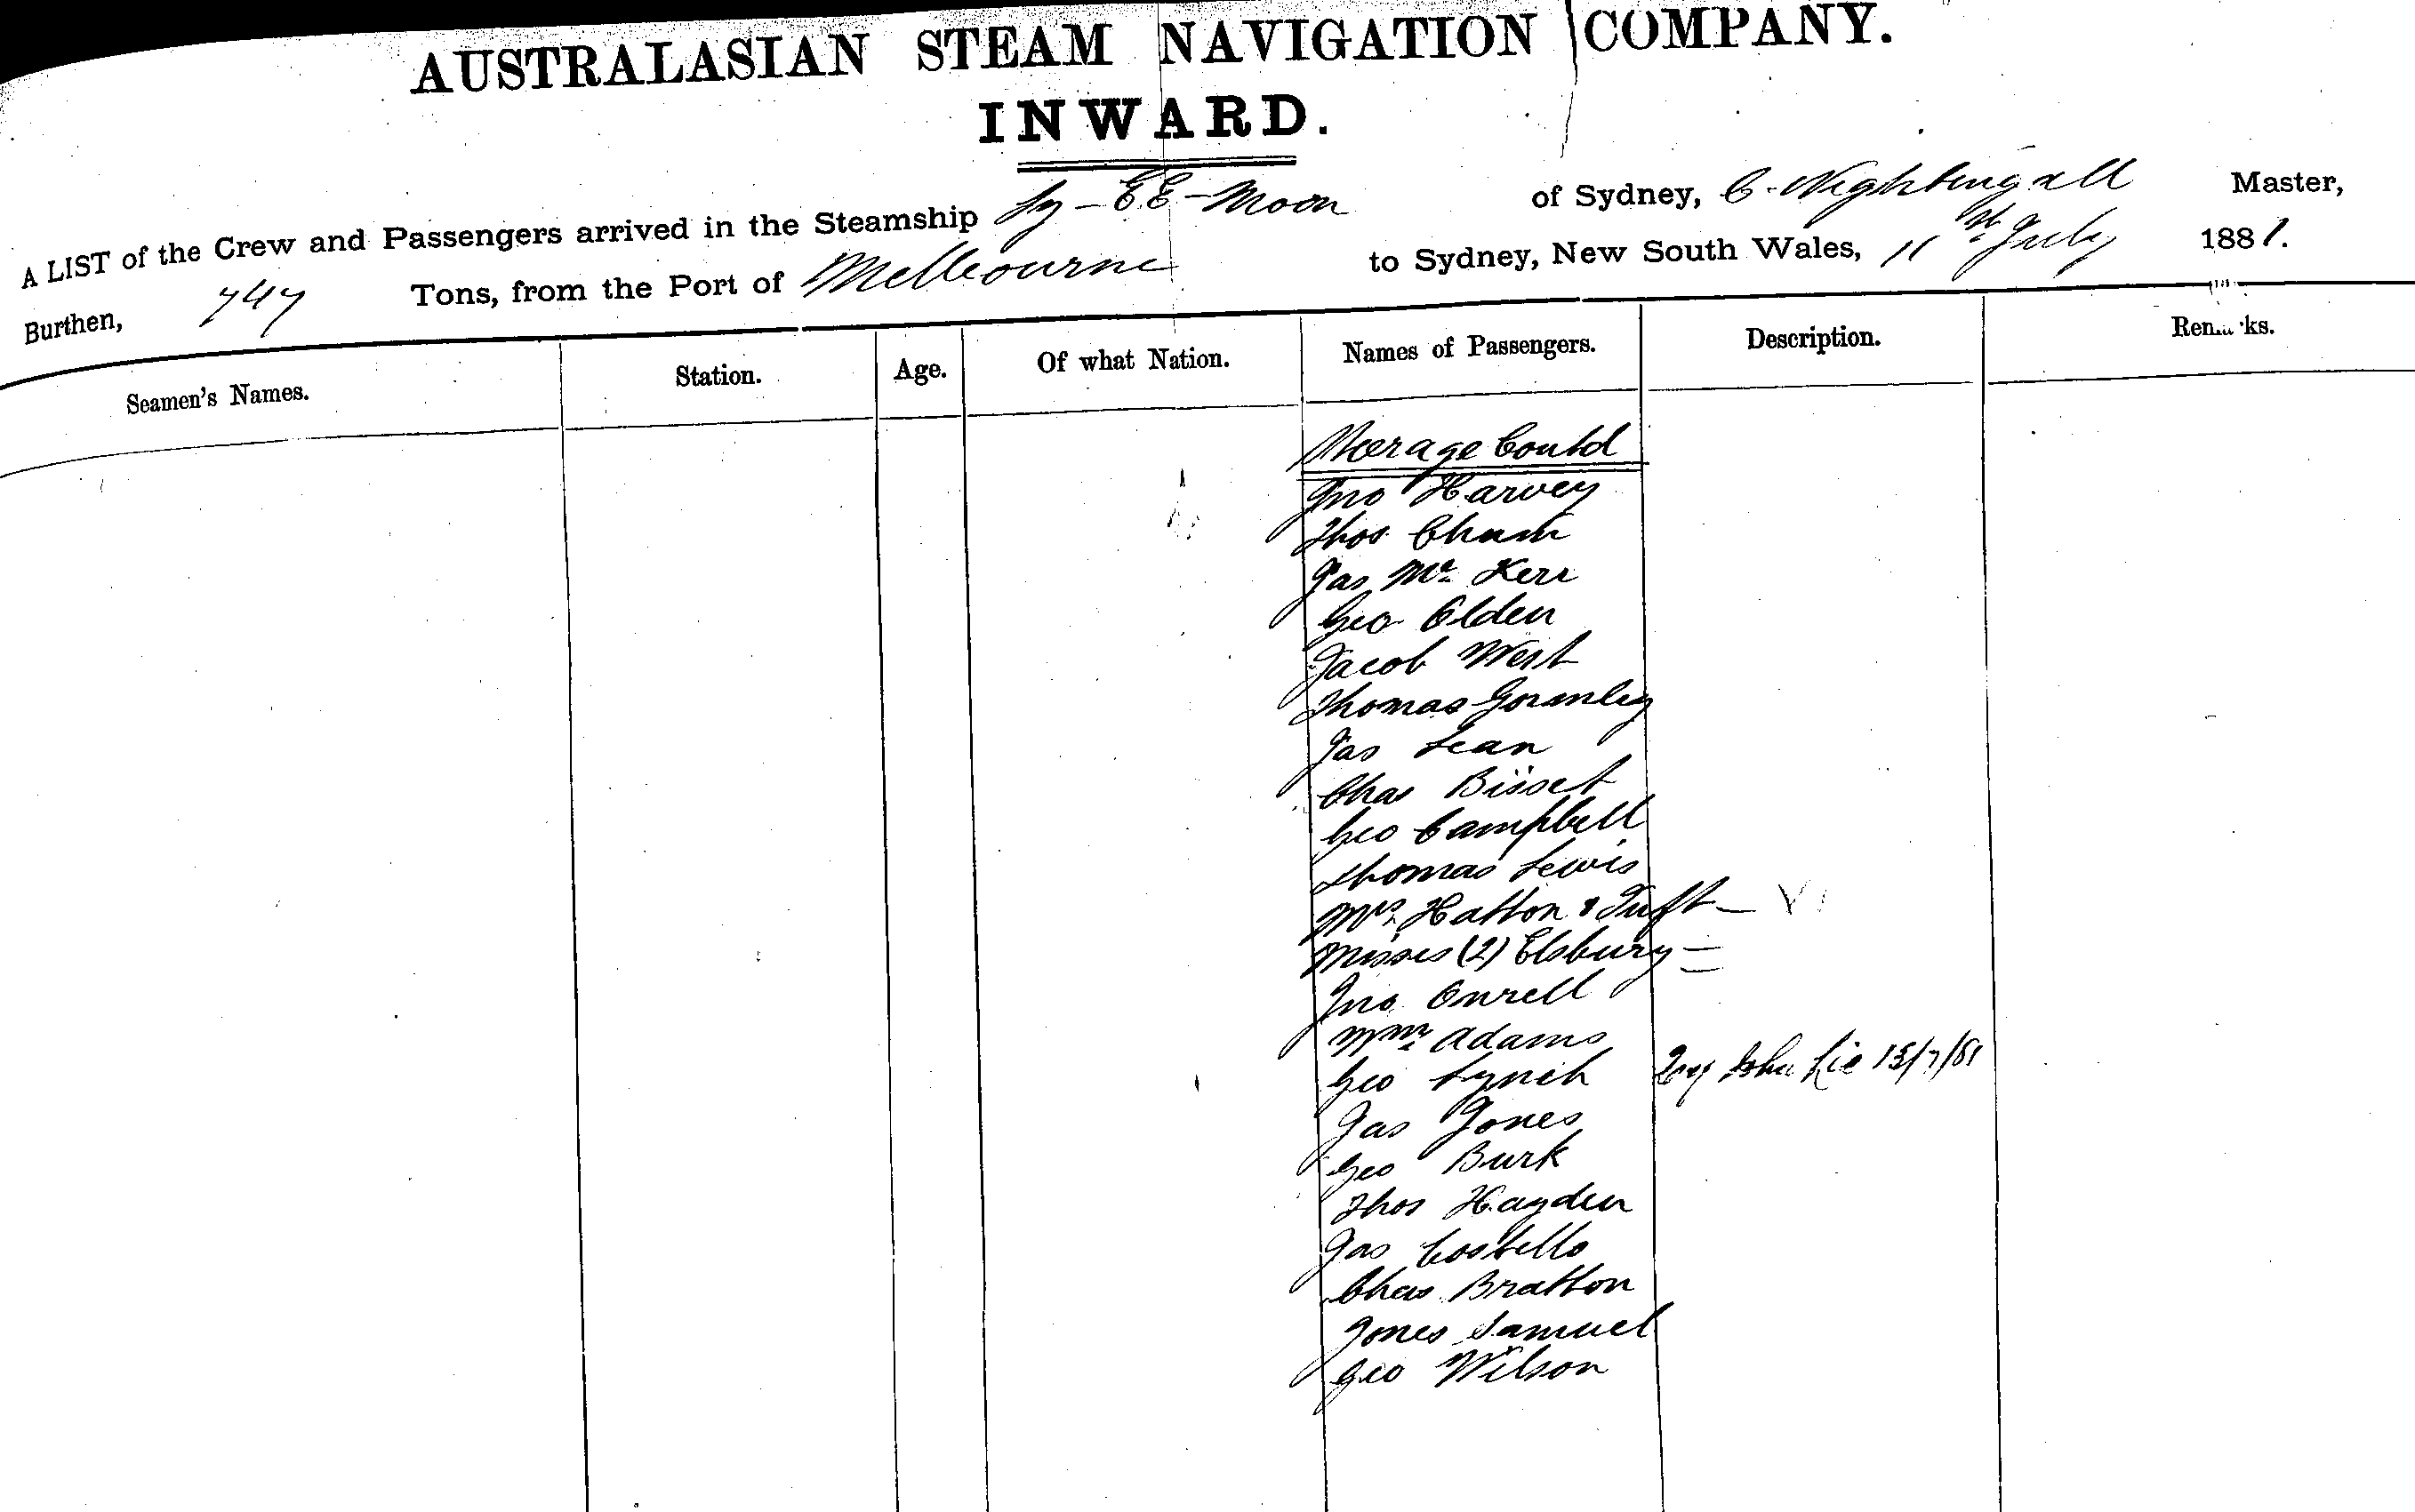 AUSTRALASIAN STEAM NAVIGATION COMPANY.
INWARD.
A LIST of the Crew and Passengers arrived in the Steamship Ly-EE-Moon of Sydney, C. Nightingall Master,
Burthen, 747 Tons, from the Port of Melbourne to Sydney, New South Wales, 11th July 1881.
Seamen's Names. Station. Age. Of what Nation. Names of Passengers. Description. Remarks.
Steerage Contd
Jno Harvey
Thos
Jas Mc Kerr
Geo Olden
Jacob West
Thomas Gormley
Jas Lean
Chas Bisset
Geo Campbell
Thomas Lewis
Mrs Hatton & Inft
Misses (2) Elsbury
Jno Onrell
Wm Adams
Geo Lynch 13/7/81
Jas Jones
Geo Burk
Thos Hayden
Jas Costello
Chas Bratton
Jones Samuel
Geo Wilson